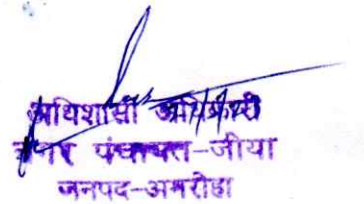 अधिशासी अधिकारी
नगर पंचायत-जोया
जनपद-अमरोहा